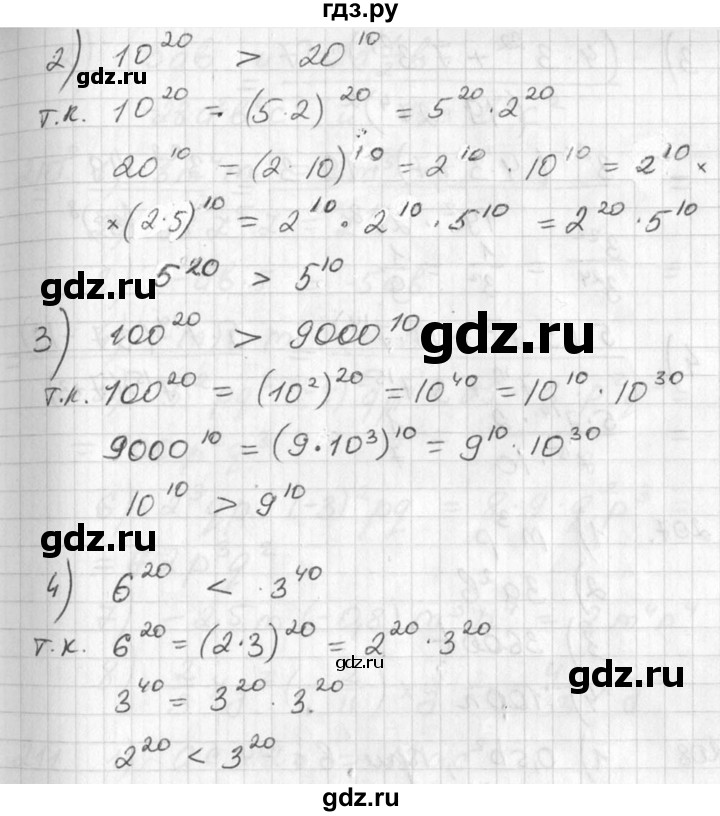 гдз.ру
2) 10^20 > 20^10
gdz.ru
т.к. 10^20 = (5·2)^20 = 5^20 · 2^20
20^10 = (2·10)^10 = 2^10 · 10^10 = 2^10 ×
×(2·5)^10 = 2^10 · 2^10 · 5^10 = 2^20 · 5^10
5^20 > 5^10
gdz.ru
3) 100^20 > 9000^10
gdz.ru
т.к. 100^20 = (10^2)^20 = 10^40 = 10^10 · 10^30
9000^10 = (9·10^3)^10 = 9^10 · 10^30
10^10 > 9^10
gdz.ru
4) 6^20 < 3^40
т.к. 6^20 = (2·3)^20 = 2^20 · 3^20
gdz.ru
gdz.ru
3^40 = 3^20 · 3^20
2^20 < 3^20
gdz.ru